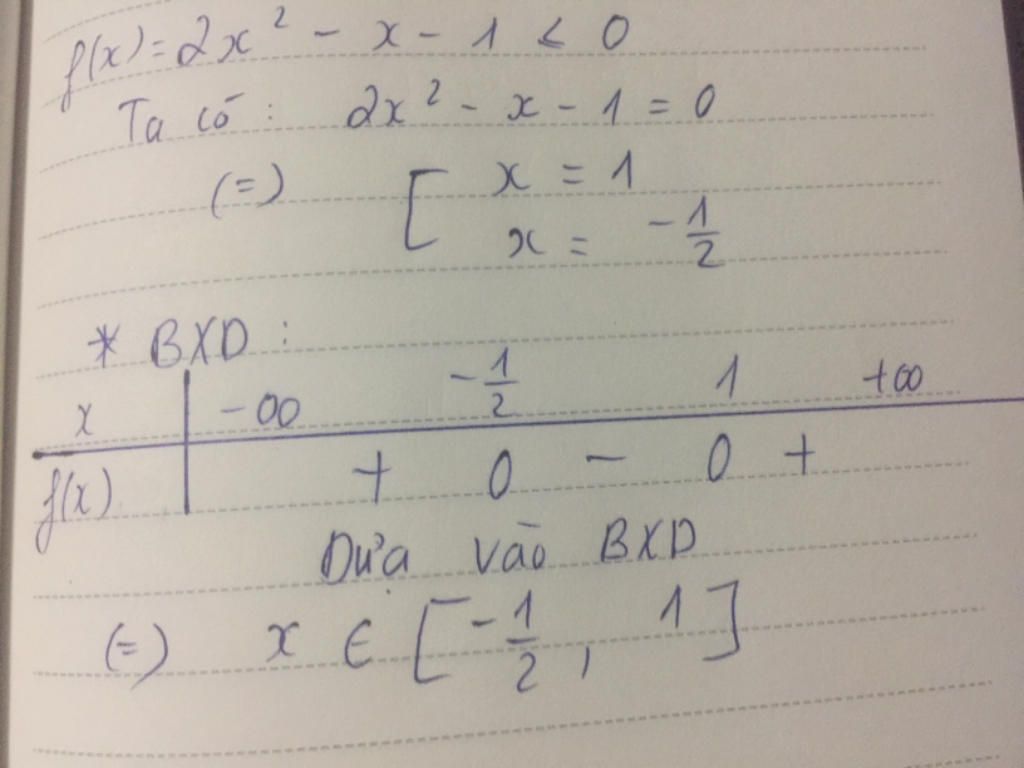 f(x) = 2x² - x - 1 < 0
Ta có: 2x² - x - 1 = 0
(=) [ x = 1
x = -1/2
* BXD:
x | -∞ -1/2 1 +∞
f(x) | + 0 - 0 +
Dựa vào BXD
(=) x ∈ [-1/2, 1]